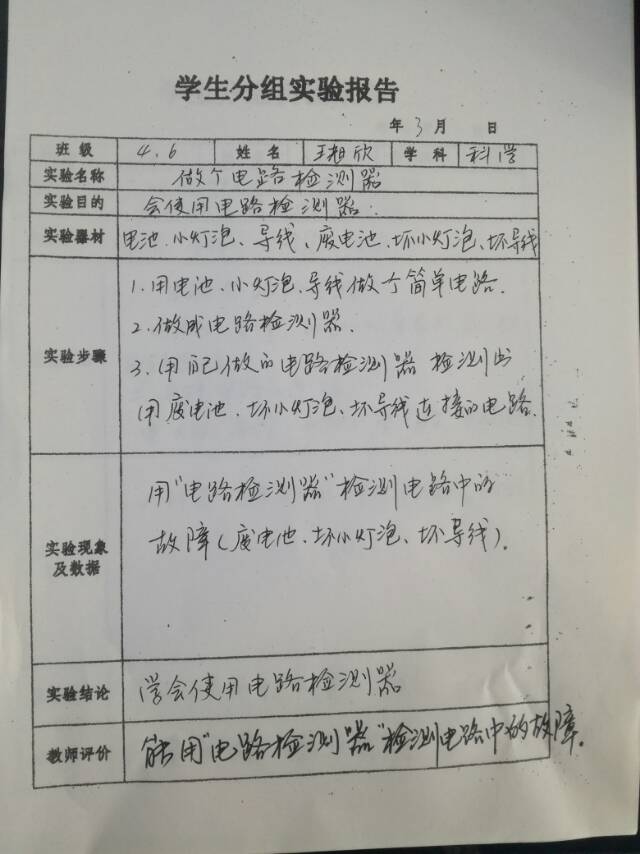 学生分组实验报告
年 3 月 日
班级 4.6 姓名 王相欣 学科 科学
实验名称 做个电路检测器
实验目的 会使用电路检测器.
实验器材 电池.小灯泡、导线、废电池.坏小灯泡、坏导线
实验步骤
1.用电池、小灯泡、导线做个简单电路.
2.做成电路检测器.
3.用自己做的电路检测器 检测出
用废电池、坏小灯泡、坏导线连接的电路.
实验现象
及数据
用"电路检测器"检测电路中的
故障(废电池、坏小灯泡、坏导线).
实验结论 学会使用电路检测器
教师评价 能用"电路检测器"检测电路中的故障.